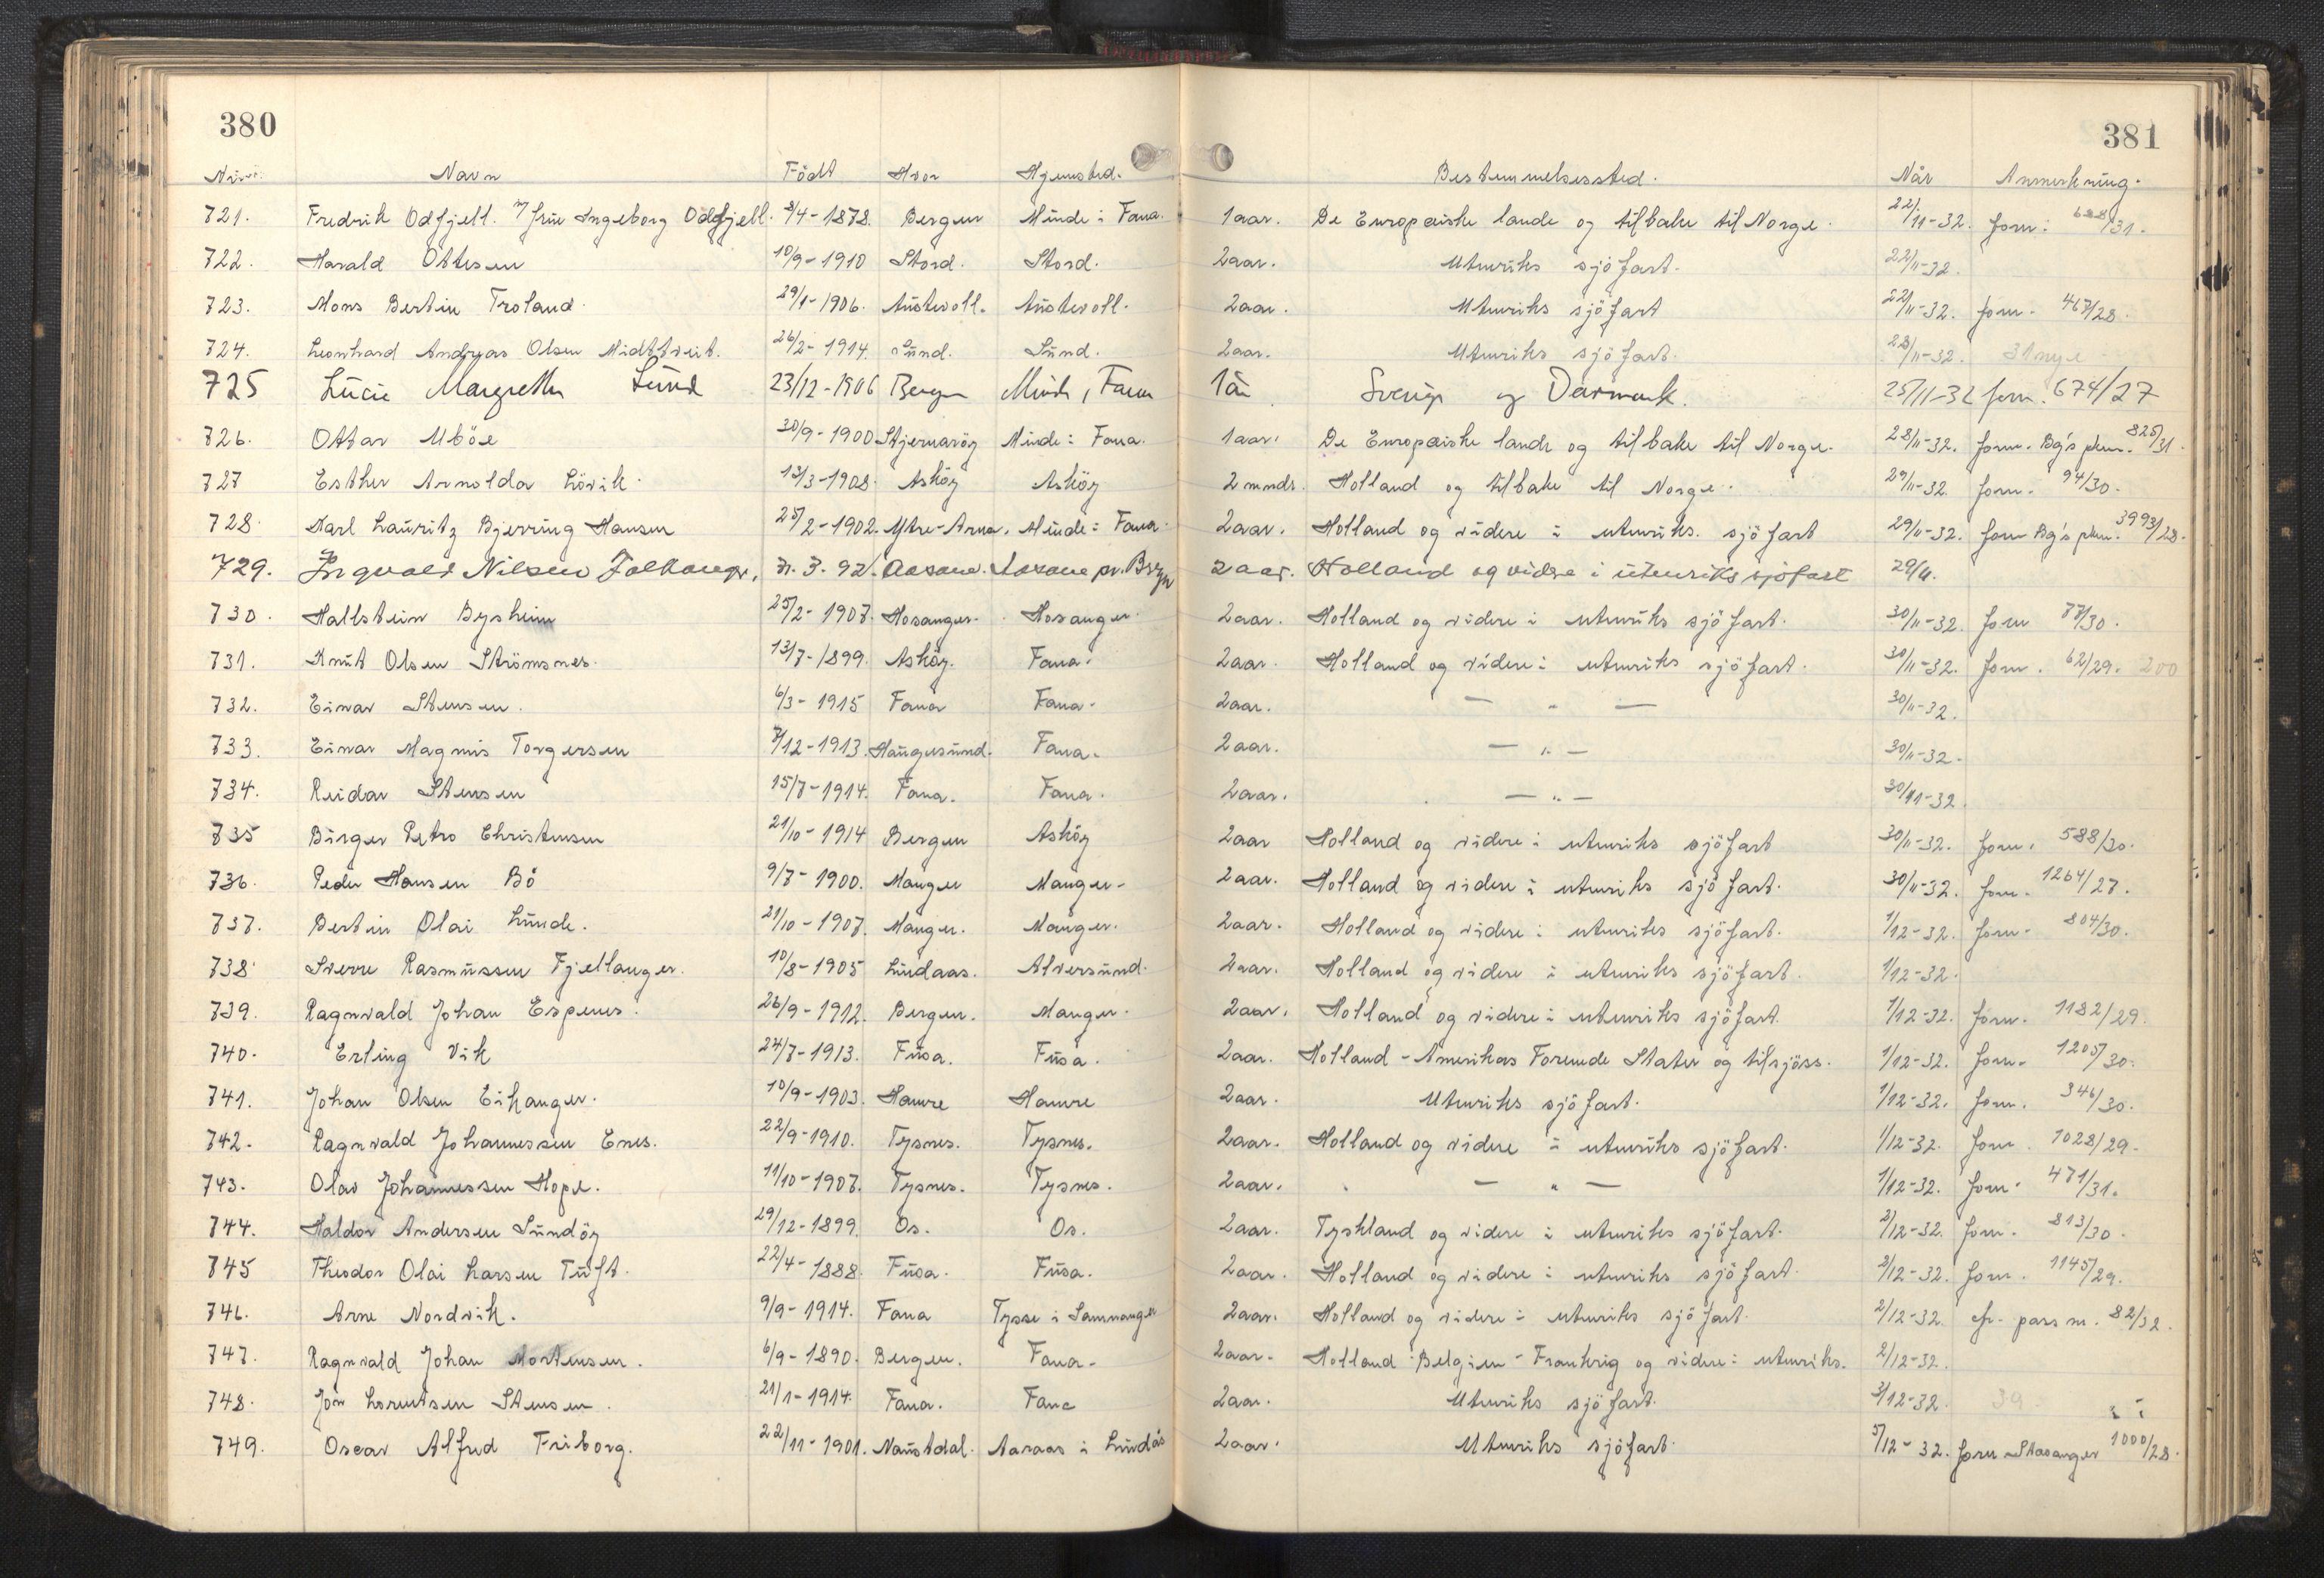 380
381
Navn Födt Hvor Hjemsted. Bestemmelsessted. Når Anmerkning.
721. Fredrik Odfjell. m/ frue Ingeborg Odfjell. 8/4-1878. Bergen Minde i Fana. 1 aar. De Europæiske lande og tilbake til Norge. 22/11-32. forn: 688/31.
722. Harald Ottesen 10/9-1910 Stord. Stord. 2 aar. Utenriks sjöfart. 22/11-32.
723. Mons Bertin Troland 29/1-1906. Aüstevoll. Aüstevoll. 2 aar. Utenriks sjöfart 22/11-32. forn. 467/28.
724. Leonhard Andreas Olsen Midttveit. 26/2-1914. Sünd. Sünd. 2 aar. Utenriks sjöfart. 23/11-32. 31 mye
725 Lücie Margrethe Lünd 23/12-1906 Bergen Minde, Fana 1 år Sverige og Danmark. 25/11-32 forn. 674/27
726. Ottar Uböe 30/9-1900 Stjernaröy Minde i Fana. 1 aar. De Europæiske lande og tilbake til Norge. 28/11-32. forn. Bg's pkm. 825/31.
727 Esther Arnolda Lövik. 13/3-1908. Asköy Asköy 2 mndr. Holland og tilbake til Norge. 29/11-32. forn. 94/30.
728. Karl Laüritz Bjerring Hansen 25/2-1902. Ytre-Arna. Minde i Fana. 2 aar. Holland og videre i utenriks. sjöfart 29/11-32. forn Bg's pkm. 3993/28.
729. Ingvald Nilsen Tellevik, 31.3.92. Aasane. Aasane pr. Bergen 2 aar. Holland og videre i ütenriks sjöfart 29/11.
730. Hallstein Bysheim 25/2-1907. Hosanger. Hosanger. 2 aar. Holland og videre i utenriks sjöfart. 30/11-32. forn 77/30.
731. Knüt Olsen Strömsnes. 13/7-1899. Asköy. Fana. 2 aar. Holland og videre i utenriks sjöfart. 30/11-32. forn. 62/29. 200
732. Einar Stensen. 6/3-1915 Fana Fana. 2 aar. — " — 30/11-32.
733. Einar Magnus Torgersen 7/12-1913. Haügesünd. Fana. 2 aar. — " — 30/11-32.
734. Reidar Stensen 15/7-1914. Fana. Fana. 2 aar. — " — 30/11-32.
735 Birger Petro Christensen 21/10-1914 Bergen Asköy 2 aar Holland og videre i utenriks sjöfart 30/11-32. forn. 588/30.
736. Peder Hansen Bö 9/7-1900. Manger Manger. 2 aar. Holland og videre i utenriks sjöfart. 30/11-32. forn. 1264/27.
737. Bertin Olai Lünde. 21/10-1907. Manger. Manger. 2 aar. Holland og videre i utenriks sjöfart. 1/12-32. forn. 804/30.
738 Sverre Rasmüssen Fjellanger. 10/8-1905 Lindaas. Alversünd. 2 aar. Holland og videre i utenriks sjöfart. 1/12-32.
739. Ragnvald Johan Espenes. 26/9-1912. Bergen. Manger. 2 aar. Holland og videre i utenriks sjöfart. 1/12-32. forn. 1182/29.
740. Erling Vik 24/7-1913. Füsa. Füsa. 2 aar. Holland - Amerikas Forenede Stater og tilsjöss. 1/12-32. forn. 1205/30.
741. Johan Olsen Eikanger. 10/9-1903. Hamre Hamre 2 aar. Utenriks sjöfart. 1/12-32. forn. 346/30.
742. Ragnvald Johannessen Enes. 22/9-1910. Tysnes. Tysnes. 2 aar. Holland og videre i utenriks sjöfart. 1/12-32. forn. 1028/29.
743. Olav Johannessen Hope. 11/10-1907. Tysnes. Tysnes. 2 aar. — " — 1/12-32. forn. 471/31.
744. Haldor Andersen Sündöy 29/12-1899. Os. Os. 2 aar. Tyskland og videre i utenriks sjöfart. 2/12-32. forn. 813/30.
745 Theodor Olai Larsen Tüft. 22/4-1888. Füsa. Füsa. 2 aar. Holland og videre i utenriks sjöfart. 2/12-32. forn. 1145/29.
746. Arne Nordvik. 9/9-1914. Fana Tysse i Samnanger 2 aar. Holland og videre i utenriks sjöfart. 2/12-32. cfr. pass nr. 82/32.
747. Ragnvald Johan Mortensen. 6/9-1890. Bergen. Fana. 2 aar. Holland - Belgien - Frankrig og videre i utenriks. 2/12-32.
748. Jon Lorentsen Stensen. 21/1-1914. Fana. Fana 2 aar. Utenriks sjöfart. 3/12-32. 39
749. Oscar Alfred Friborg. 22/11-1901. Naüstdal. Aaraas i Lindås 2 aar. Utenriks sjöfart. 5/12-32. forn Stavanger 1000/28.